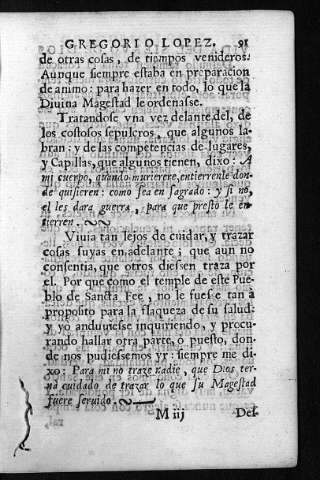 GREGORIO LOPEZ. 91
de otras cosas, de tiempos venideros.
Aunque siempre estaba en preparacion
de animo: para hazer en todo, lo que la
Diuina Magestad le ordenasse.
Tratandose vna vez delante del, de
los costosos sepulcros, que algunos la-
bran: y de las competencias de lugares,
y Capillas, que algunos tienen, dixo: A
mi cuerpo, quando muriere, entierrenle don-
de quisieren: como sea en sagrado: y si no,
el les dara guerra, para que presto le en-
tierren.
Viuia tan lejos de cuidar, y trazar
cosas suyas en adelante; que aun no
consentia, que otros diessen traza por
el. Por que como el temple de este Pue-
blo de Sancta Fee, no le fuesse tan a
proposito para la flaqueza de su salud,
y yo anduuiesse inquiriendo, y procu-
rando hallar otra parte, o puesto, don-
de nos pudiessemos yr: siempre me di-
xo: Para mi no traze nadie, que Dios ter-
na cuidado de trazar lo que su Magestad
fuere seruido.
M iij Des-